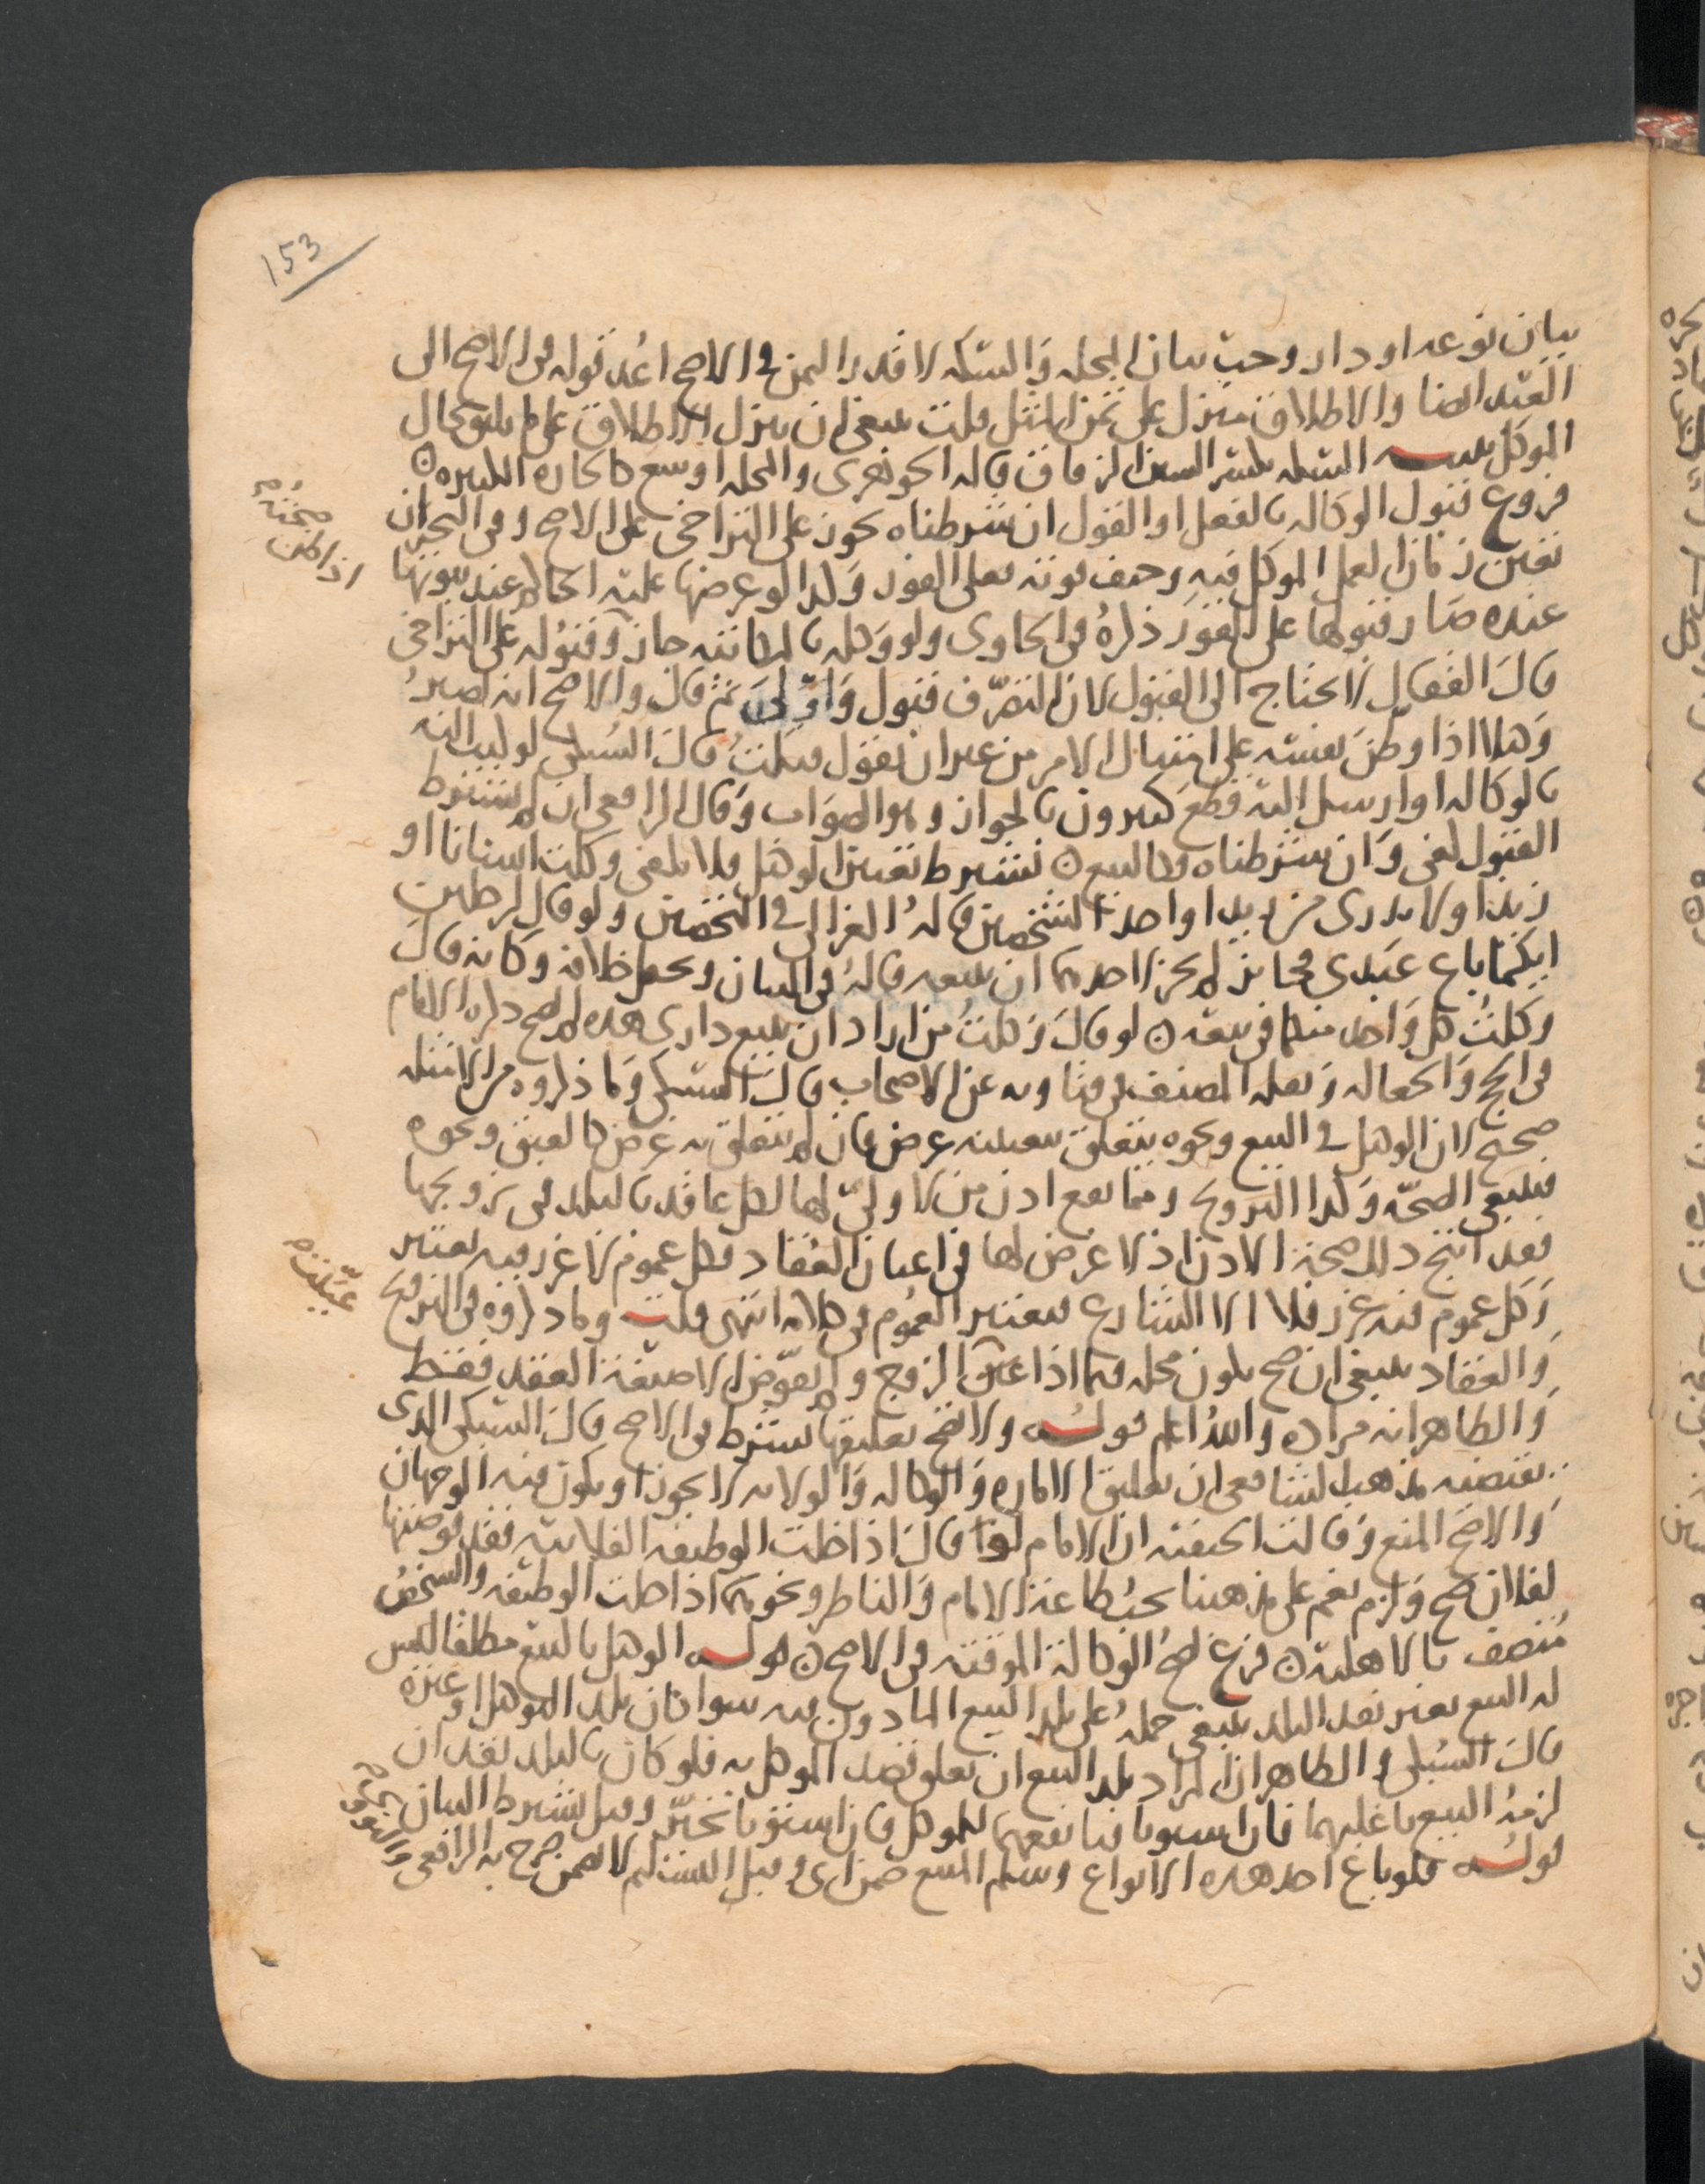 153
بيان نوعه او دار وجب بيان المحله والسكه لا قدر الثمن في الاصح اعد قوله في الاصح الى
العبد ايضا والاطلاق منزل على ثمن المثل قلت ينبغي ان ينزل الاطلاق على ما يليق بحال
الموكل تنبيه السكه بكسر السين الزقاق قاله الجوهري والمحله اوسع كالحاره الكبيره
فروع قبول الوكاله بالفعل او القول ان شرطناه يجوز على التراخي على الاصح وفي البحر ان
تعين زمان العمل الموكل فيه وخيف فوته فعلى الفور وكذا لو عرضها عليه الحاكم عند ثبوتها
عنده صار قبولها على الفور ذكره في الحاوي ولو وكله بالمكاتبه جاز وقبوله على التراخي
قال القفال لا يحتاج الى القبول لان التصرف قبول ثم قال والاصح انه يصير
وهذا اذا وطن نفسه على امتثال الامر من غير ان يقول قبلت قال السبكي لو كتب اليه
بالوكاله او ارسل اليه قطع كثيرون بالجواز وهو الصواب وقال الرافعي ان لم يشترط
القبول كفى وان شرطناه فكالبيع يشترط تعيين الوكيل فلا يكفي وكلت انسانا او
زيدا ولا يدري من زيد او احد الشخصين قاله الغزالي في التحصين ولو قال لرجلين
ايكما باع عبدي فجائز لم يجز لاحدهما ان يبيعه قاله في البيان ويحمل خلافه وكانه قال
وكلت كل واحد منكما في بيعه لو قال وكلت من اراد ان يبيع داري هذه لم يصح ذكره الامام
في الحج والجعاله ونقله المصنف في فتاويه عن الاصحاب قال السبكي وما ذكروه من الامثله
صحيح لان الوكيل في البيع ونحوه يتعلق بتعيينه غرض فان لم يتعلق به غرض كالعتق ونحوه
فينبغي الصحه وكذا التزويج ومما يقع اذن من لا ولي لها لكل عاقد بالبلد في تزويجها
فقد انتج ذلك صحة الاذن اذ لا غرض لها في اعيان العقاد فكل عموم لا غرر فيه يعتبر
وكل عموم فيه غرر فلا الا الشارع فيعتبر العموم في كلامه انتهى قلت وما ذكروه في التزويج
والعقاد ينبغي ان صح يكون محله فيما اذا عين الزوج ولم يفوض الا صيغة العقد فقط
والظاهر انه مراده والله اعلم قوله ولا يصح تعليقها بشرط في الاصح قال السبكي الذي
يقتضيه مذهب الشافعي ان تعليق الاماره والوكاله والولايه لا يجوز او يكون فيه الوجهان
والاصح المنع وقالت الحنفيه ان الامام لو قال اذا خلت الوظيفه الفلانيه فقد فوضتها
لفلان صح ولم نعم على مذهبنا بحث عن الامام والناظر ونحوهما اذا خلت الوظيفه والشخص
متصف بالاهليه فرع تصح الوكالة الموقته في الاصح قوله الوكيل بالبيع مطلقا ليس
له البيع بغير نقد البلد ينبغي حمله على بلد البيع الماذون فيه سوا كان بلد الموكل او غيره
قال السبكي والظاهر ان المراد بلد البيع ان تعلق قصد الموكل به فلو كان بالبلد نقدان
لزمه البيع باغلبهما فان استويا فبانفعهما للموكل فان استويا تخير وقيل يشترط البيان
قوله فلو باع احد هذه الانواع وسلم المبيع ضمن اي وقبل التسليم لا يضمن صرح به الرافعي والنووي
صحته
اذا
عينت